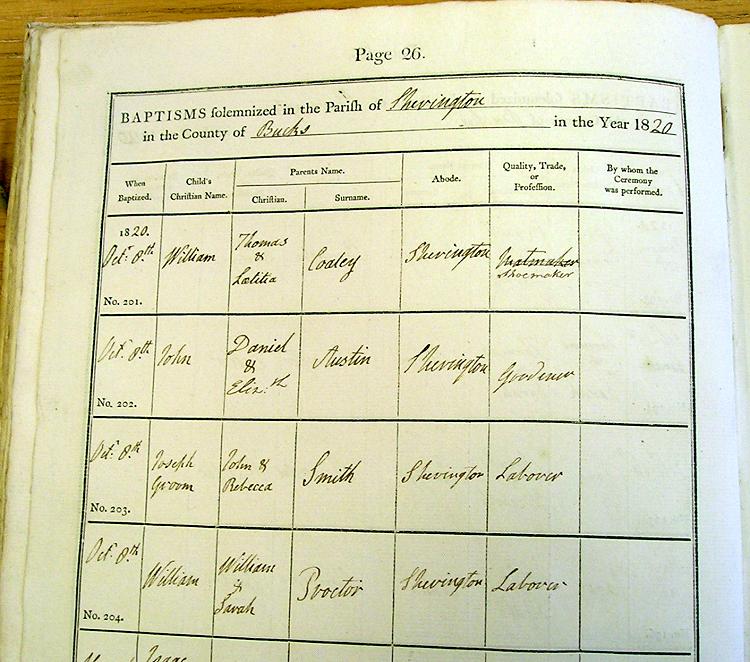 Page 26.
BAPTISMS solemnized in the Parish of Shevington
in the County of Bucks in the Year 1820
When Baptized. Child's Christian Name. Parents Name. Abode. Quality, Trade, or Profession. By whom the Ceremony was performed.
Christian. Surname.
1820.
Octr. 8th William Thomas & Lætitia Coaley Shevington Matmaker Shoemaker
No. 201.
Octr. 8th John Daniel & Eliz.th Austin Shevington
No. 202.
Octr. 8th Joseph Groom John & Rebecca Smith Shevington Labourer
No. 203.
Octr. 8th William William & Sarah Proctor Shevington Labourer
No. 204.
Isaac